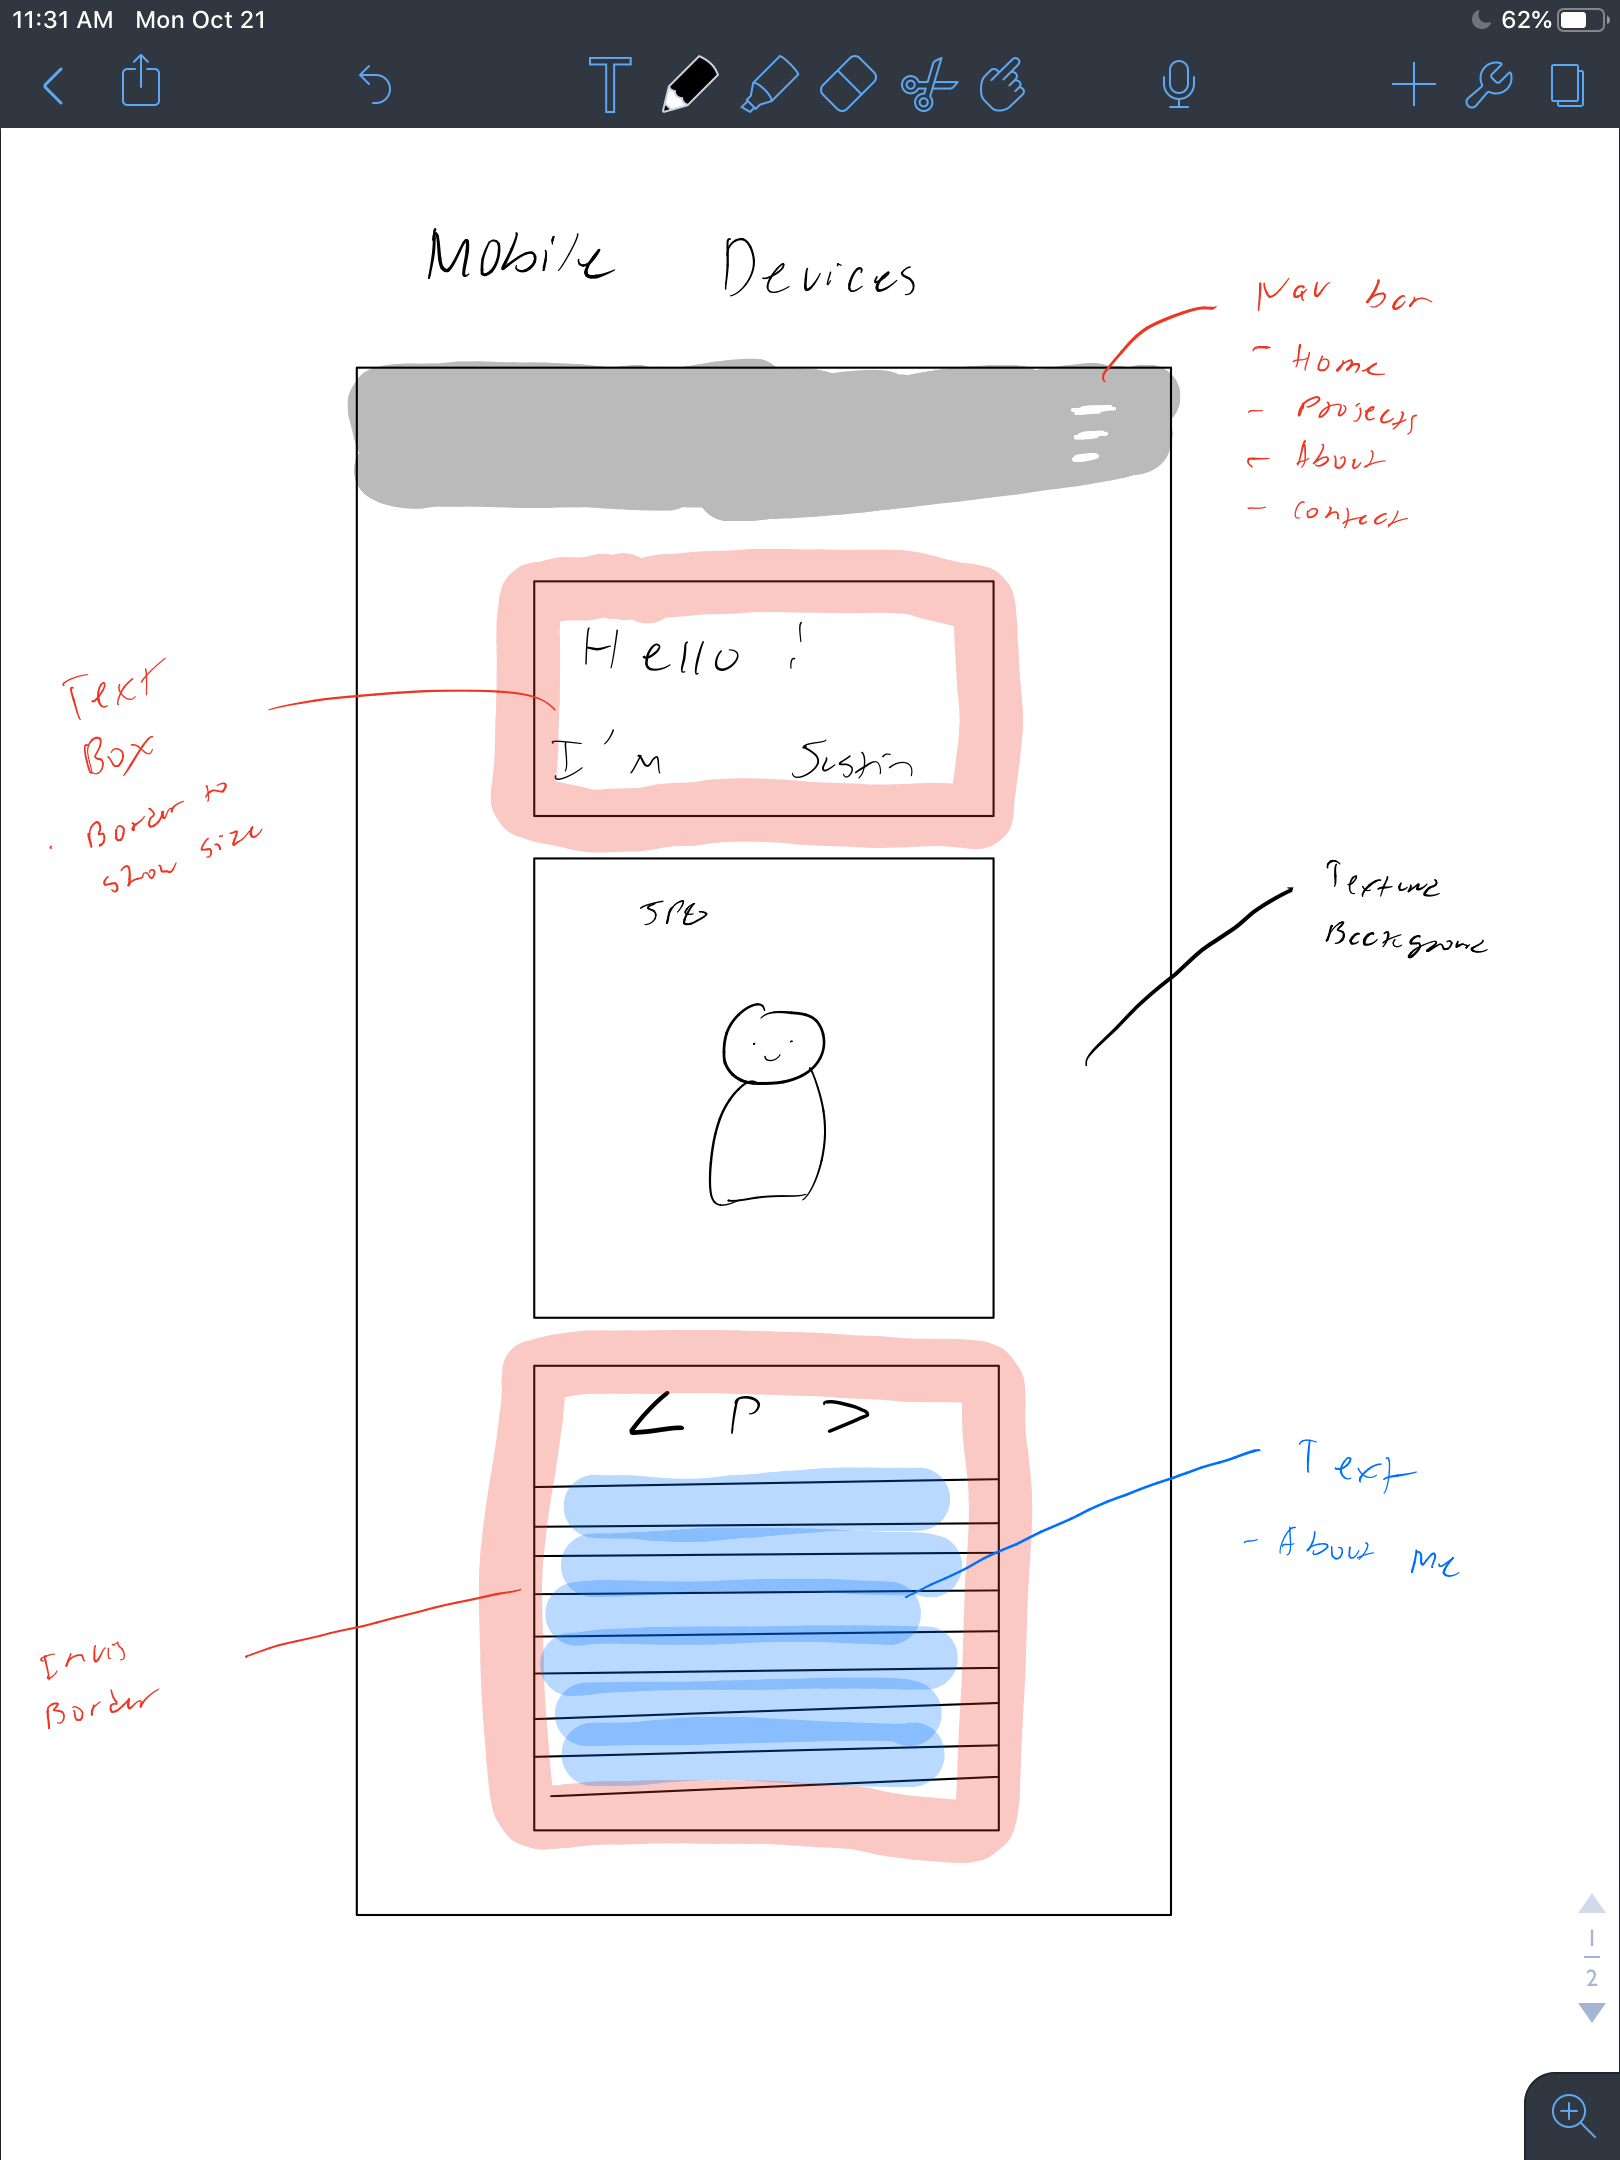 11:31 AM Mon Oct 21
62%
T
Mobile Devices
Nav bar
- Home
- Projects
- About
- Contact
Hello !
I'm Justin
Text
Box
. Border to
show size
JPG
Texture
Background
< P >
Text
- About Me
Invis
Border
1
2